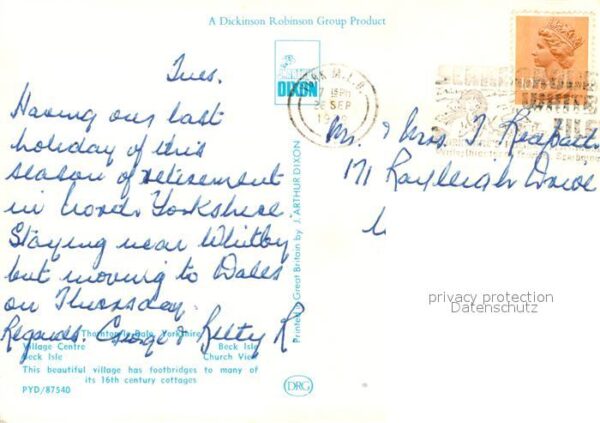 A Dickinson Robinson Group Product
DIXON
Tues.
Having our last
holiday of this
season of retirement
in North Yorkshire.
Staying near Whitby
but moving to Dales
on Thursday.
Regards. George & Betty R.
Thornton-le-Dale, Yorkshire
Village Centre Beck Isle
Beck Isle Church View
This beautiful village has footbridges to many of
its 16th century cottages
PYD/87540
Printed in Great Britain by J. ARTHUR DIXON
DRG
SEP
Mr. & Mrs. T.
171 Rayleigh Drive
privacy protection
Datenschutz